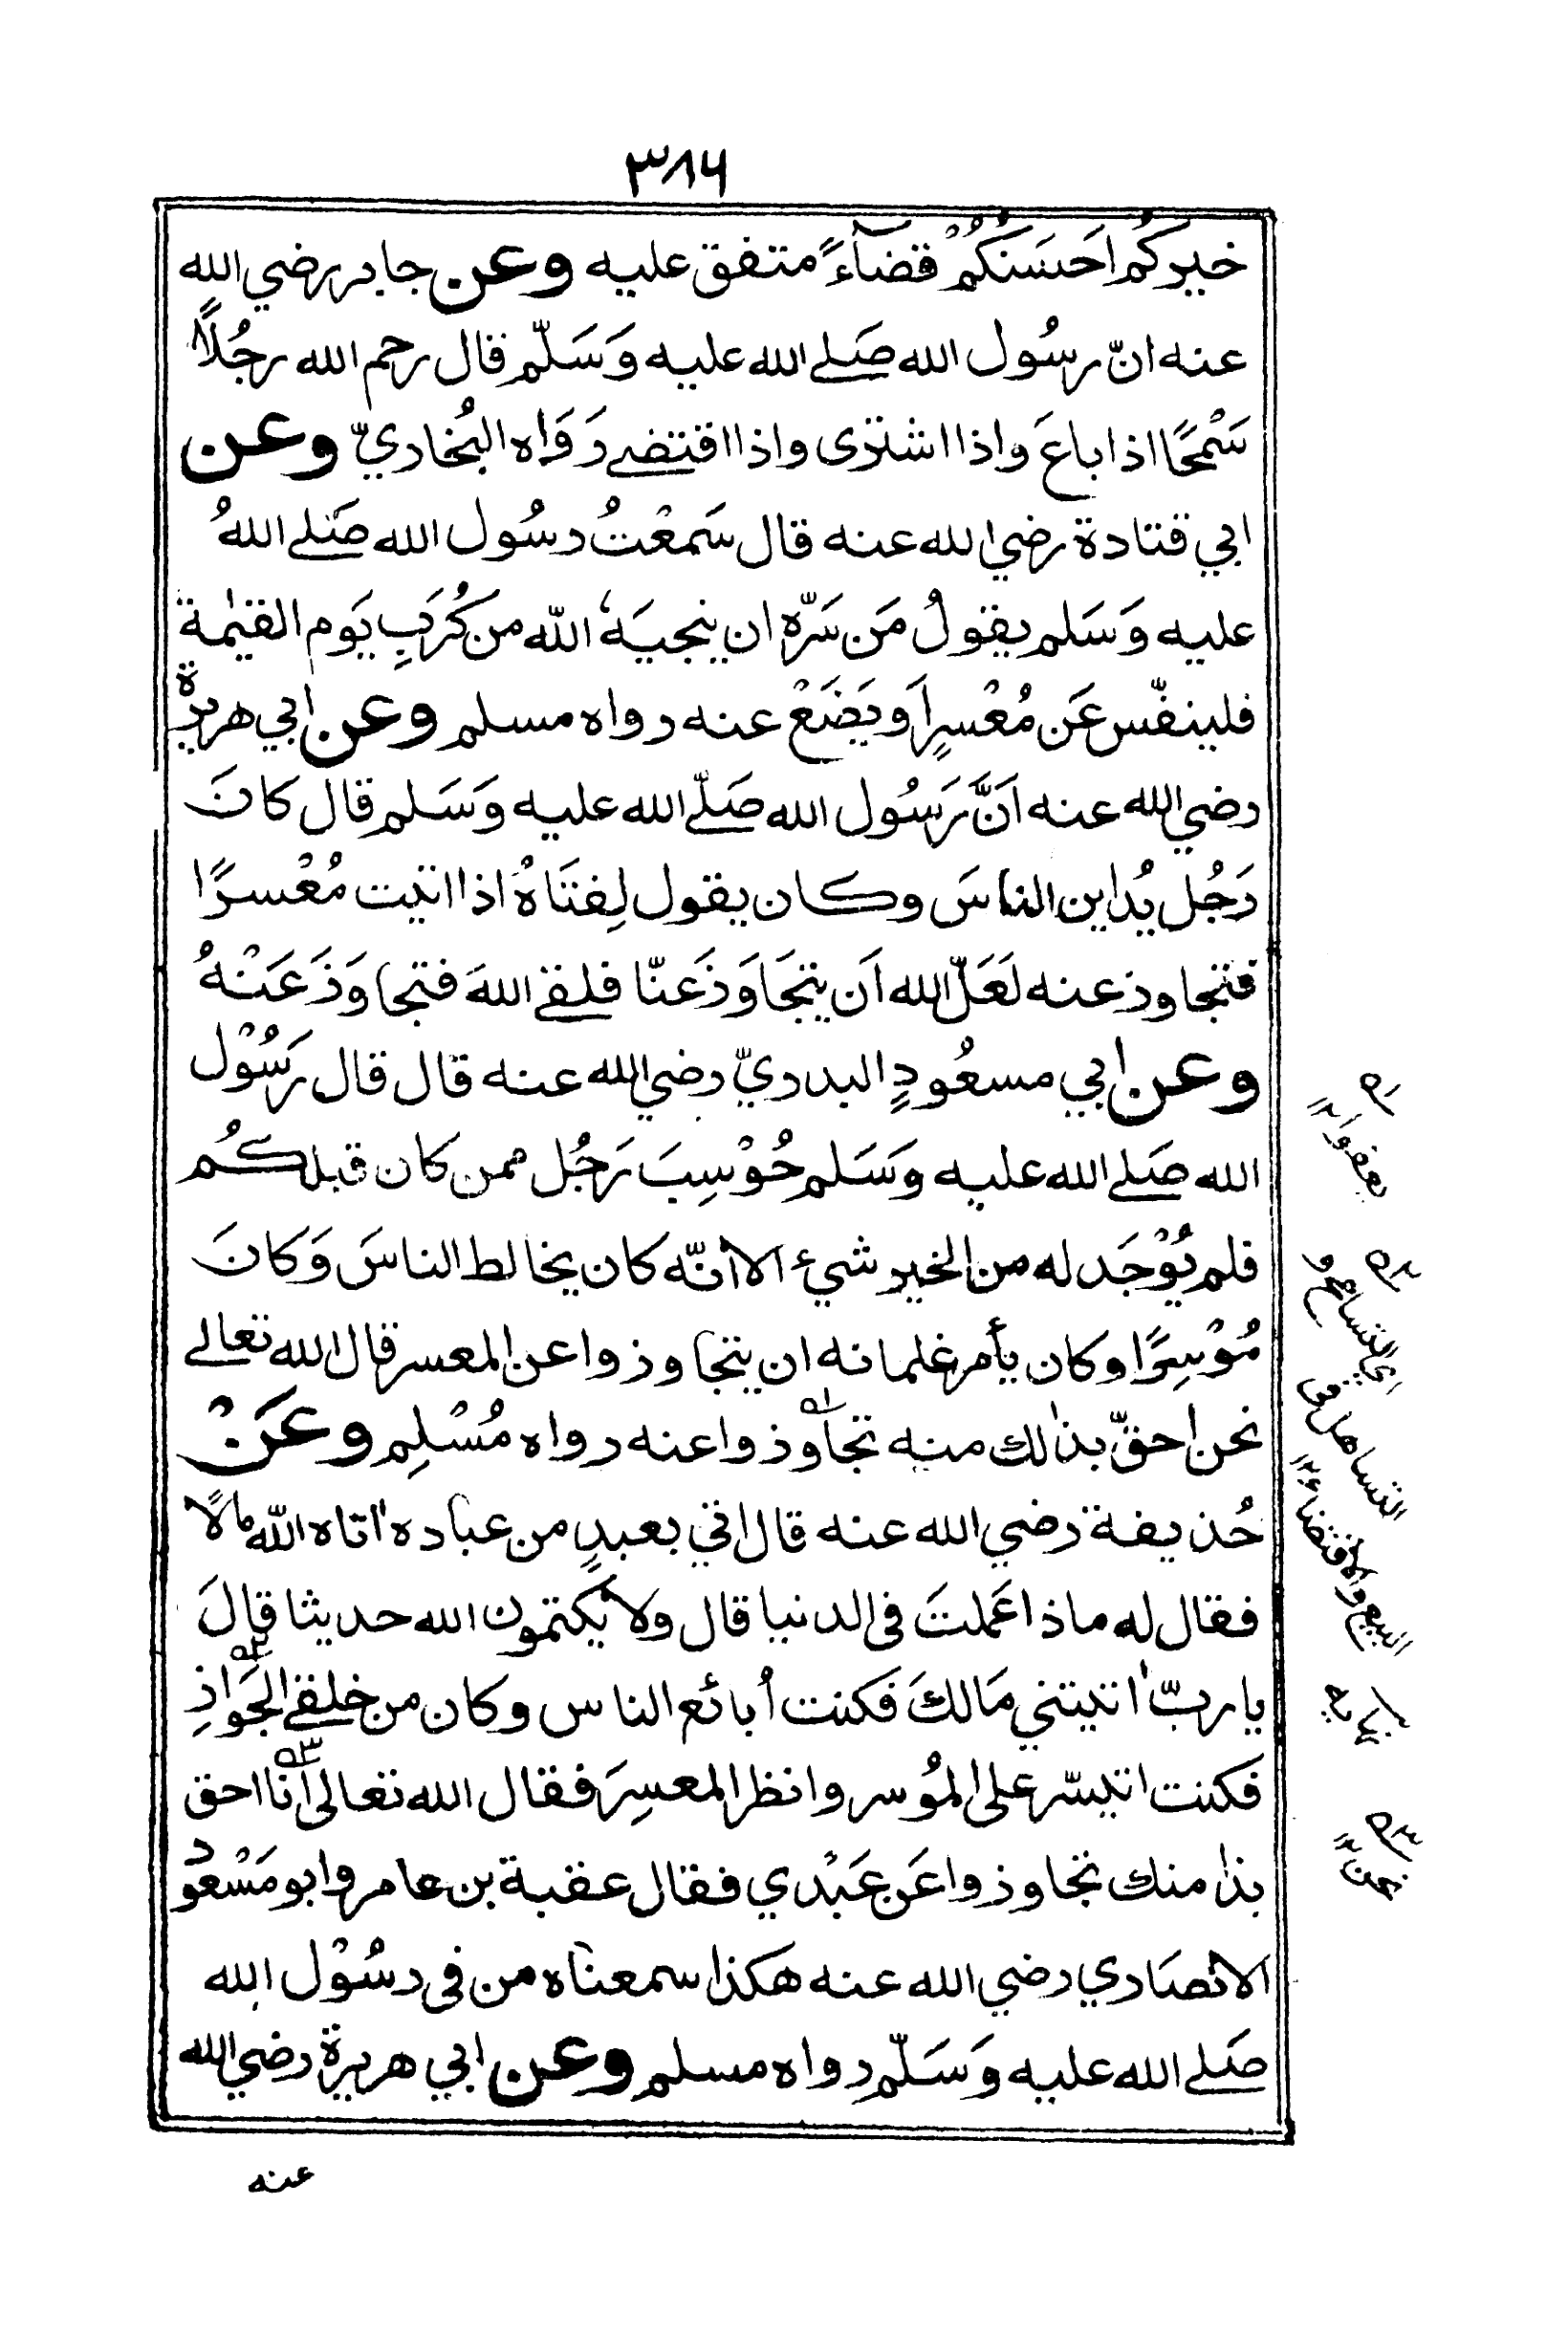 ٣٨٦
خيركُم اَحَسَنُكُمْ قضآءً متفق عليه وعن جابر رضي الله
عنه انّ رسُول الله صَلے الله عليه وَسَلّم قال رحم الله رجُلًا
سَمْحًا اذا باعَ واذا اشترى واذا اقتضے رَوَاه البُخاريّ وعن
ابي قتادة رضي الله عنه قال سَمعْتُ رسُول الله صَلے اللهُ
عليه وَسَلم يقولُ مَن سَرّه ان ينجيَهُ الله من كُرَبِ يَوم القيٰمة
فلينفّس عَن مُعْسِرٍ اَو يَضَعْ عنه رواه مسلم وعن ابي هريرة
رضي الله عنه اَنَّ رَسُول الله صَلّے الله عليه وَسَلم قال كانَ
رَجُل يُداين الناسَ وكان يقول لِفتَاهُ اذا اتيت مُعْسرًا
فتجاوز عنه لَعَلّ الله اَن يتجَاوَزَ عَنّا فلقے اللهَ فتجاوَزَ عَنْهُ
وعن ابي مسعُودٍ البدريّ رضي الله عنه قال قال رَسُوْل
الله صَلے الله عليه وَسَلم حُوْسِبَ رَجُل ممن كان قبلكُم
فلم يُوْجَد له من الخير شيء الا انّه كان يخالط الناسَ وَكانَ
مُوْسِرًا وكان يأمر غلمانه ان يتجاوزوا عن المعسر قال الله تعالے
نحن احقّ بذٰلك منه تجاوزوا عنه رواه مُسْلِم وعَنْ
حُذيفة رضي الله عنه قال اتي بعبدٍ من عباده اٰتاه الله مالًا
فقال له ماذا عَملتَ فى الدنيا قال ولا يكتمون الله حديثا قالَ
يا ربّ اٰتيتني مَالكَ فكنت اُبائع الناس وكان من خلقے الجَوَازِ
فكنت اتيسّر على المُوسر وانظر المعسِرَ فقال الله تعالى اَنا احق
بذا منك تجاوزوا عَن عَبْدي فقال عقبة بن عامر وابو مَسْعُود
الانصَاري رضي الله عنه هكذا سمعنَاه من فى رسُوْل الله
صَلے الله عليه وَسَلّم رواه مسلم وعن ابي هريرة رضي الله
عنه
يعفو ١٢
اي التسامح و
التساهل فى
البيع والاقتضاء ١٢
نهاية
نحن ١٢